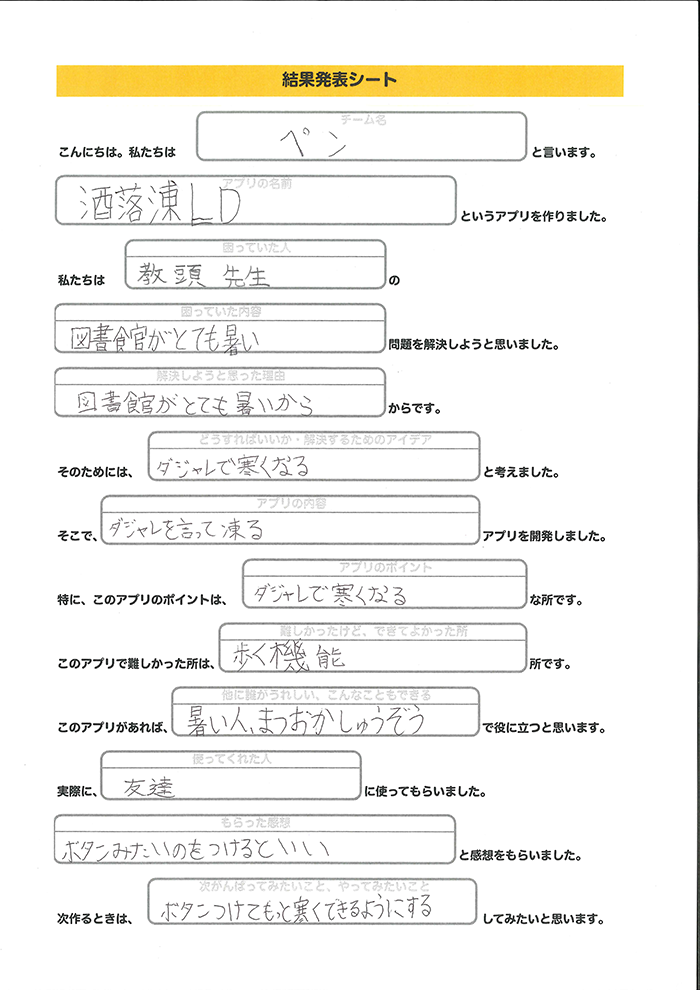 結果発表シート
チーム名
こんにちは。私たちは ペン と言います。
アプリの名前
洒落凍LD というアプリを作りました。
困っていた人
私たちは 教頭先生 の
困っていた内容
図書食官がとても暑い 問題を解決しようと思いました。
解決しようと思った理由
図書食官がとても暑いから からです。
どうすればいいか・解決するためのアイデア
そのためには、 ダジャレで寒くなる と考えました。
アプリの内容
そこで、 ダジャレを言って凍る アプリを開発しました。
アプリのポイント
特に、このアプリのポイントは、 ダジャレで寒くなる な所です。
難しかったけど、できてよかった所
このアプリで難しかった所は、 歩く機能 所です。
他に誰がうれしい、こんなこともできる
このアプリがあれば、 暑い人、まつおかしゅうぞう で役に立つと思います。
使ってくれた人
実際に、 友達 に使ってもらいました。
もらった感想
ボタンみたいのをつけるといい と感想をもらいました。
次がんばってみたいこと、やってみたいこと
次作るときは、 ボタンつけてもっと寒くできるようにする してみたいと思います。